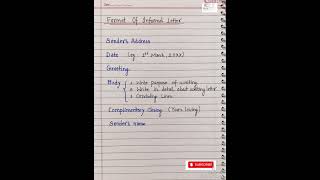 Format Of Informal Letter
Sender's Address
Date (eg: 1st March, 20XX)
Greeting
Body
• Write purpose of writing
• Write in detail about writing letter
• Concluding Lines
Complimentary Closing (Yours loving)
Sender's name
SUBSCRIBE